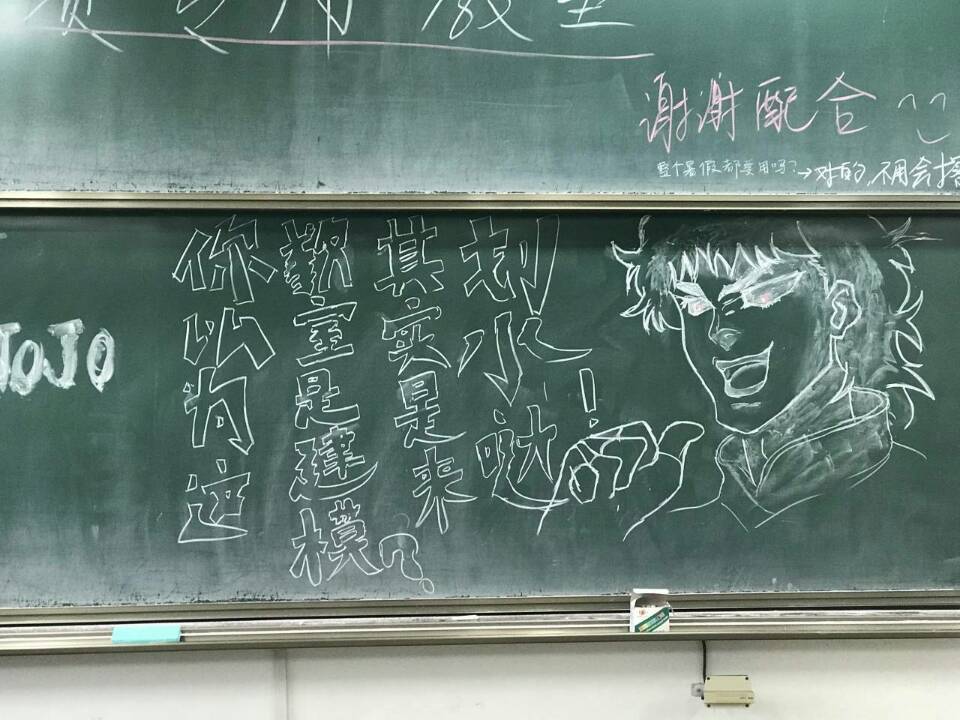 用教室
谢谢配合
整个暑假都要用吗?→对的,不用会擦
JOJO
你以为这
教室是建模?
其实是来
划水哒!